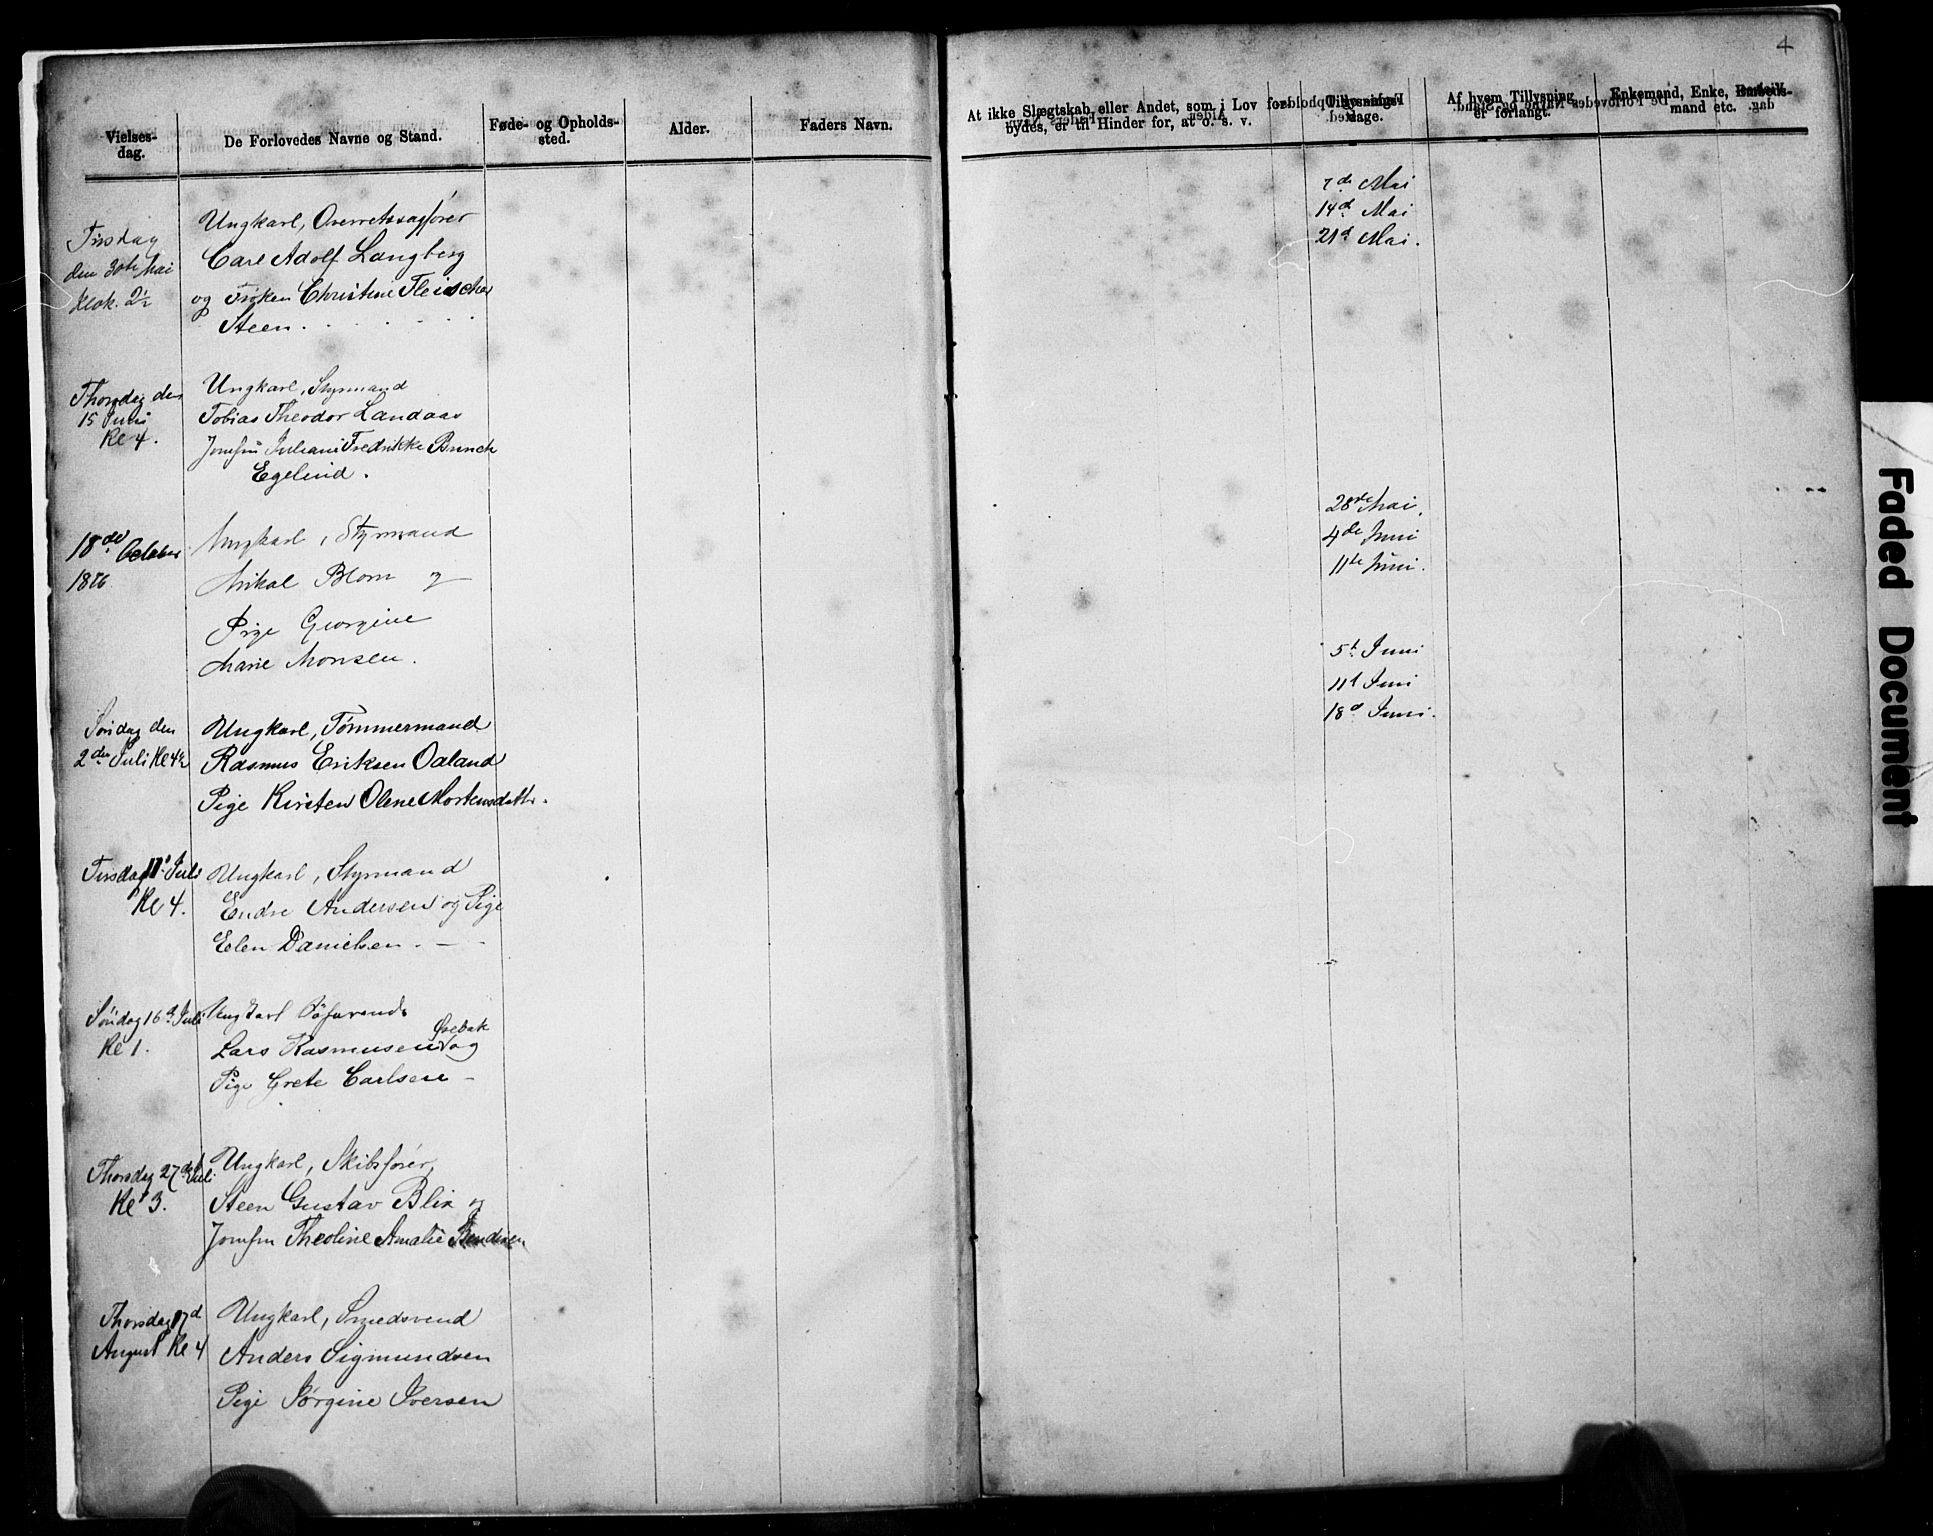 4
Vielses-
dag.
De Forlovedes Navne og Stand.
Føde- og Opholds-
sted.
Alder.
Faders Navn.
At ikke Slægtskab eller Andet, som i Lov for-
bydes, er til Hinder for, at o. s. v.
Tillysnings-
dage.
Af hvem Tillysning
er forlangt.
Enkemand, Enke, Fraskilt
mand etc.
Tirsdag
den 30te Mai
Klok. 2½
Ungkarl, Overretssagfører
Carl Adolf Langberg
og Frøken Christine Fleischer
Steen.
7de Mai
14d Mai
21d Mai.
Thorsdag den
15 Juni
Kl 4.
Ungkarl, Styrmand
Tobias Theodor Landaas
Jomfru Juliane Fredrikke Bunch
Egelund.
18de October
1876
Ungkarl, Styrmand
Mikal Blom og
Pige Georgine
Marie Monsen.
28de Mai.
4de Juni
11te Juni.
5t Juni
11t Juni
18d Juni.
Søndag den
2den Juli Kl 4½
Ungkarl, Tømmermand
Rasmus Eriksen Oaland
Pige Kirsten Olene Mortensdatter.
Tirsdag 11d Juli
Kl 4.
Ungkarl, Styrmand
Endre Andersen og Pige
Elen Danielsen. —
Søndag 16d Juli
Kl 1.
Ungkarl Søfarende
Lars Rasmusen Qvebak og
Pige Grete Carlsen —
Thorsdag 27de Juli
Kl 3.
Ungkarl, Skibsfører,
Steen Gustav Blix og
Jomfru Theoline Amalie
Thorsdag 17d
August Kl 4
Ungkarl, Smedsvend
Anders Sigmundsen
Pige Jørgine Iversen
Faded Document